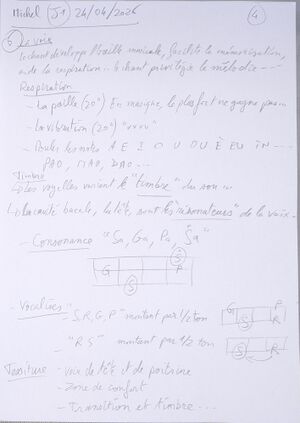 Michel J-1 24/04/2026 4
6 La voix
Le chant développe l'oreille musicale, facilite la mémorisation,
aide la respiration... le chant privilégie la mélodie ...
Respiration
- La paille (20") En musique, le plus fort ne gagne pas ...
- La vibration (20") "vvvv"
- Poser les notes A E I O U OU È EU IN ...
PAO, MAO, DAO ...
Timbre
↳ Les voyelles varient le "timbre" du son ...
↳ La cavité buccale, la tête, sont les "résonateurs" de la voix.
- Consonance "Sa, Ga, Pa, Ṡa"
G Ṡ P
S
- Vocalises
- "S, R, G, P" montant par 1/2 ton
G P
S R
"R S" montant par 1/2 ton
S R
Tessiture - voix de tête et de poitrine
- Zone de confort
- Transition et timbre ...